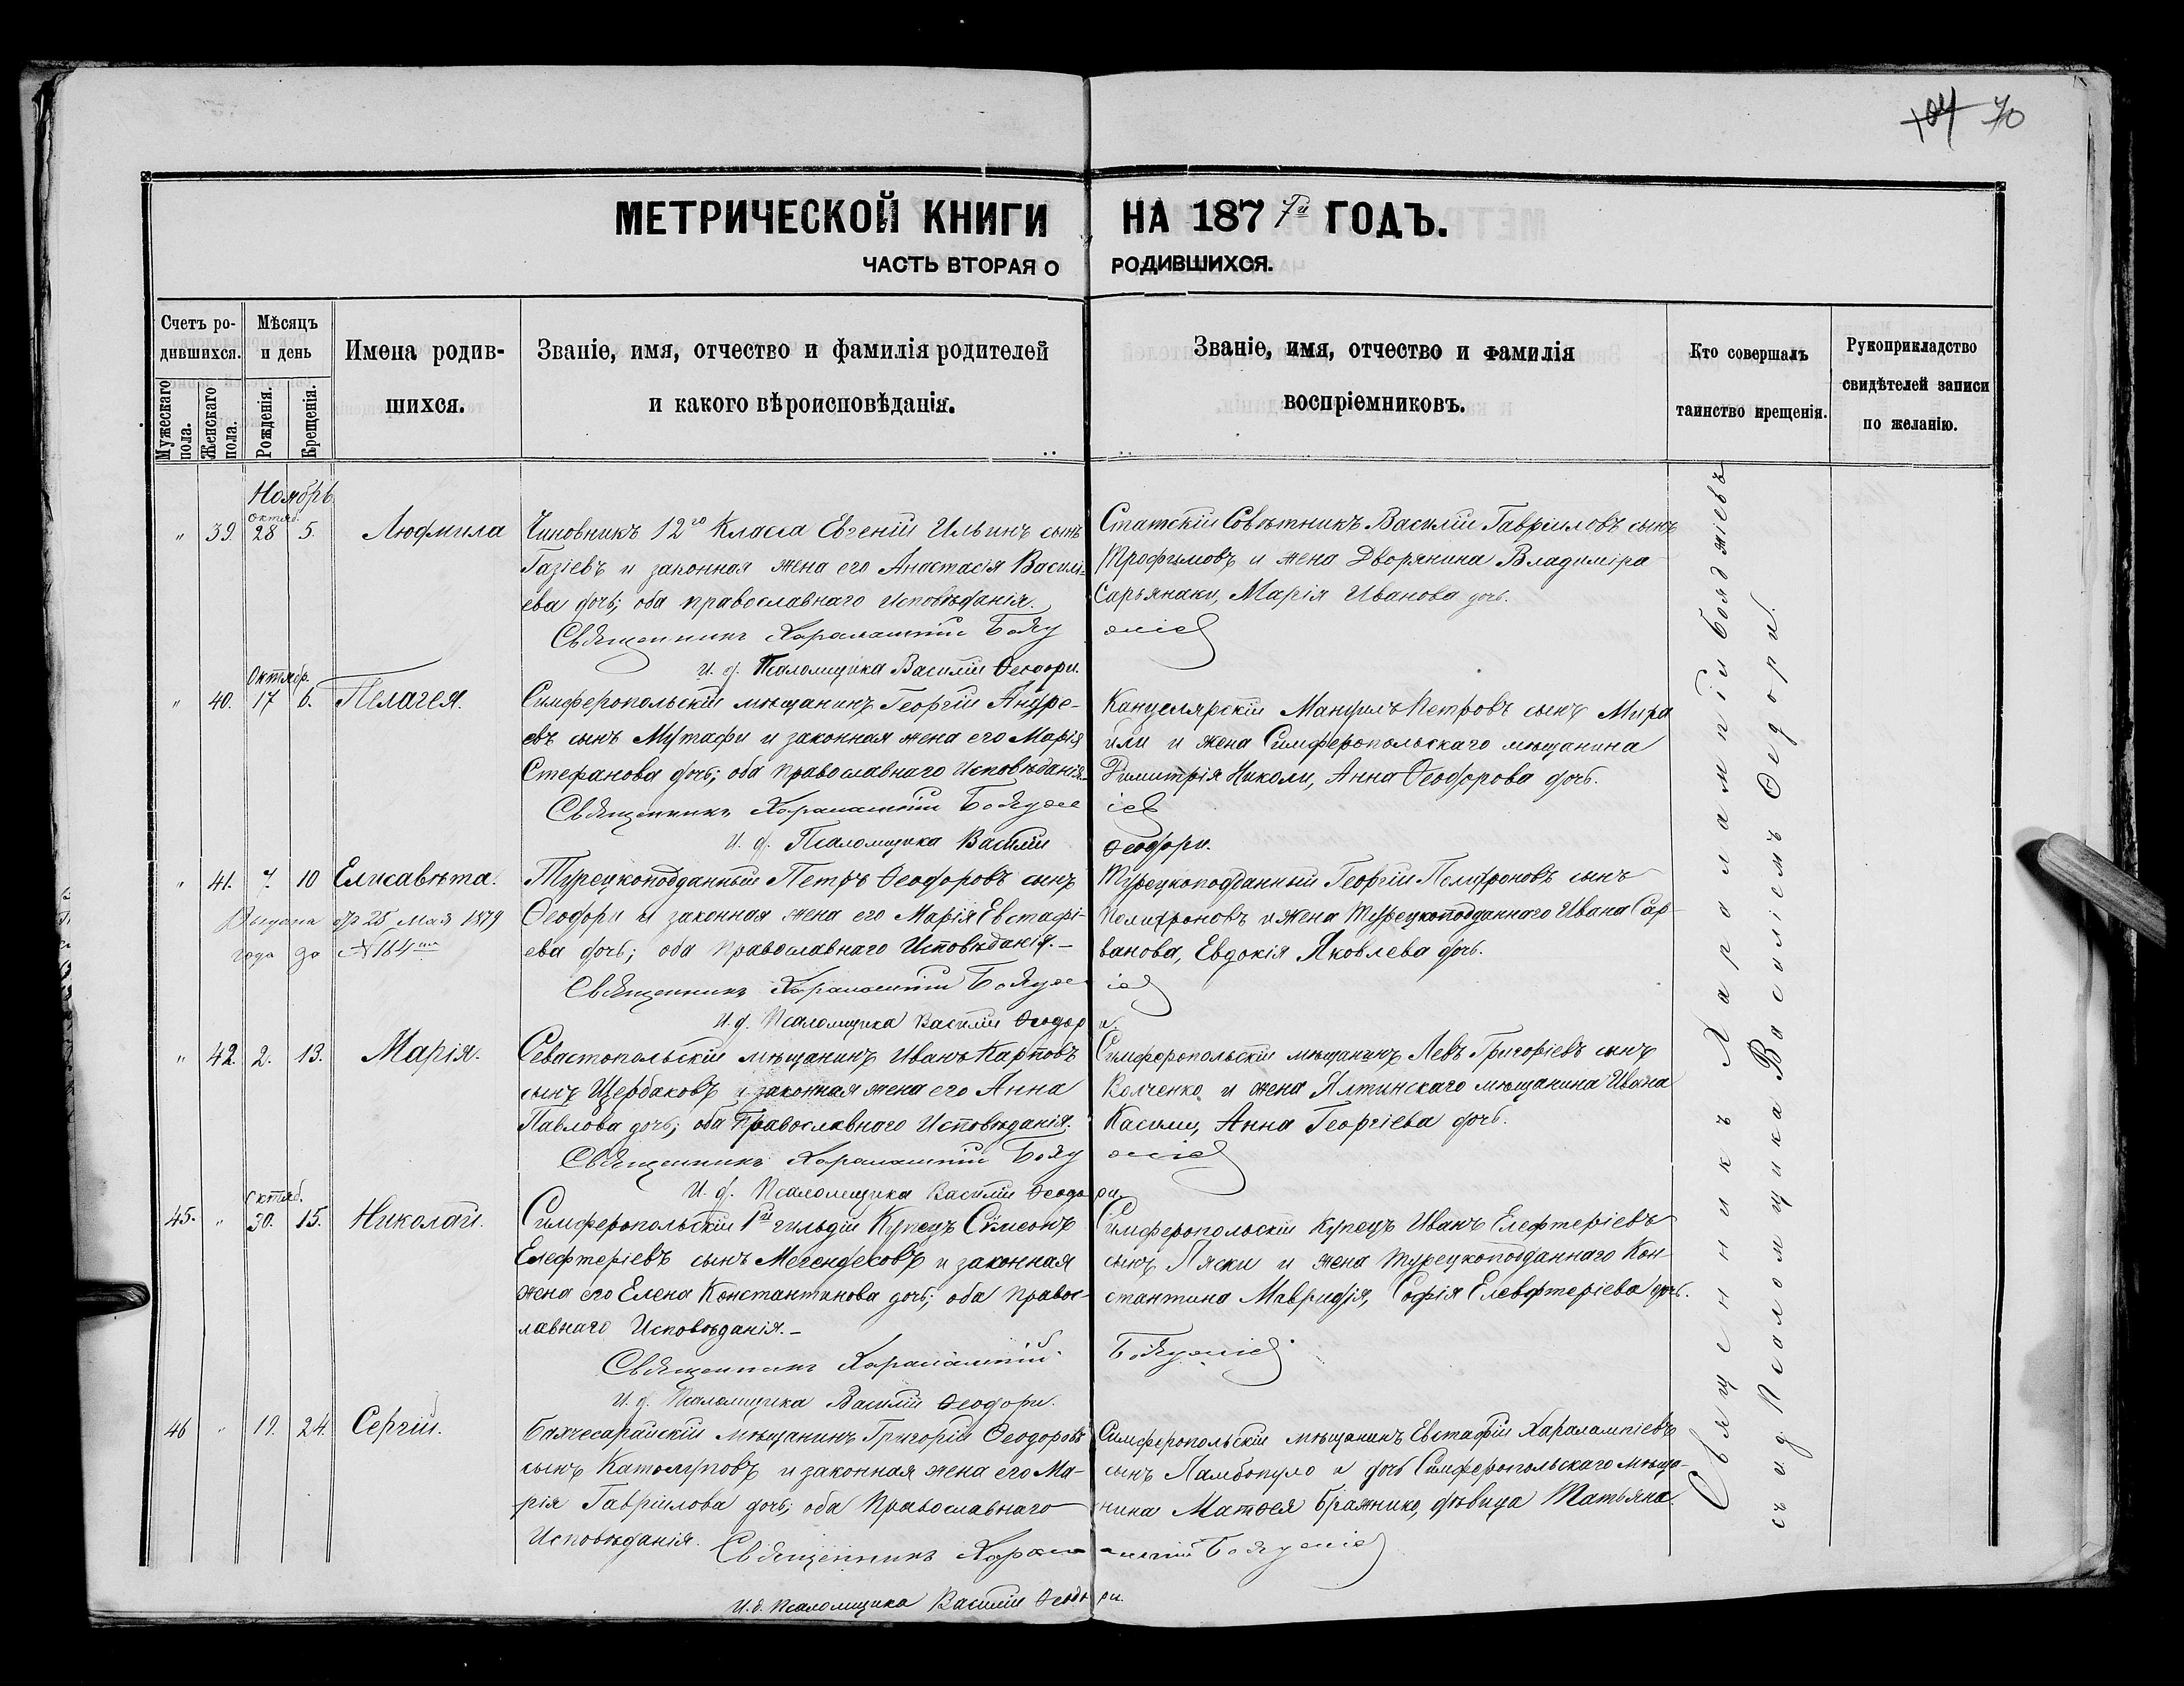 104 70
МЕТРИЧЕСКОЙ КНИГИ НА 1877й ГОДЪ.
ЧАСТЬ ВТОРАЯ О РОДИВШИХСЯ.
Счетъ родившихся.
Мужескаго пола.
Женскаго пола.
Мѣсяцъ и день
Рожденія.
Крещенія.
Имена родившихся.
Званіе, имя, отчество и фамилія родителей
и какого вѣроисповѣданія.
Званіе, имя, отчество и фамилія
воспріемниковъ.
Кто совершалъ
таинство крещенія.
Рукоприкладство
свидѣтелей записи
по желанію.
Ноябрь
Октяб.
" 39. 28 5. Людмила
Чиновникъ 12го Класса Евгеній Ильинъ сынъ
Газіевъ и законная жена его Анастасія Василі-
ева дочь; оба православнаго Исповѣданія.
Статскій Совѣтникъ Василій Гавріиловъ сынъ
Трофимовъ и жена Дворянина Владиміра
Сарьянаки, Марія Иванова дочь.
Священникъ Харалампій Бояджіев
и. д. Псаломщика Василій Ѳеодори.
Октябр.
" 40. 17 6. Пелагея.
Симферопольскій мѣщанинъ Георгій Андре-
евъ сынъ Мутафи и законная жена его Марія
Стефанова дочь; оба православнаго Исповѣданія.
Канцелярскій Мануилъ Петровъ сынъ Мира
или и жена Симферопольскаго мѣщанина
Димитрія Николи, Анна Ѳеодорова дочь.
Священникъ Харалампій Бояджіев
И. д. Псаломщика Василій Ѳеодори.
" 41. 7. 10 Елисавѣта.
Выдана 25 Мая 1879
года за № 184
Турецкоподданный Петръ Ѳеодоровъ сынъ
Ѳеодори и законная жена его Марія Евстафі-
ева дочь; оба православнаго Исповѣданія.-
Турецкоподданный Георгій Полифроновъ сынъ
Полифроновъ и жена Турецкоподданнаго Ивана Сар-
ванова, Евдокія Яковлева дочь.
Священникъ Харалампій Бояджіев
И. д. Псаломщика Василій Ѳеодори.
" 42. 2. 13. Марія.
Севастопольскій мѣщанинъ Иванъ Карповъ
сынъ Щербаковъ и законная жена его Анна
Павлова дочь; оба Православнаго Исповѣданія.
Симферопольскій мѣщанинъ Левъ Григоріевъ сынъ
Колченко и жена Ялтинскаго мѣщанина Ивана
Касими, Анна Георгіева дочь.
Священникъ Харалампій Бояджіев
И. д. Псаломщика Василій Ѳеодори.
Октяб.
45. " 30. 15. Николай.
Симферопольскій 1й гильдіи Купецъ Сѵмеонъ
Елефтеріевъ сынъ Мегендековъ и законная
жена его Елена Константинова дочь; оба правос-
лавнаго Исповѣданія.-
Симферопольскій Купецъ Иванъ Елефтеріевъ
сынъ Пяски и жена турецкоподданнаго Кон-
стантина Мавриді, Софія Елевфтеріева дочь.
Священникъ Харалампій Бояджіев
И. д. Псаломщика Василій Ѳеодори.
46 " 19. 24. Сергій.
Бахчесарайскій мѣщанинъ Григорій Ѳеодоровъ
сынъ Катамуповъ и законная жена его Ма-
рія Гавріилова дочь; оба Православнаго
Исповѣданія.
Симферопольскій мѣщанинъ Евстафій Харалампіевъ
сынъ Памбопуло и дочь Симферопольскаго мѣща-
нина Матѳея Бражнико, дѣвица Татьяна.
Священникъ Харалампій Бояджіев
И. д. Псаломщика Василій Ѳеодори.
Священникъ Харалампій Бояджіевъ
съ и. д. Псаломщика Василіемъ Ѳедори.